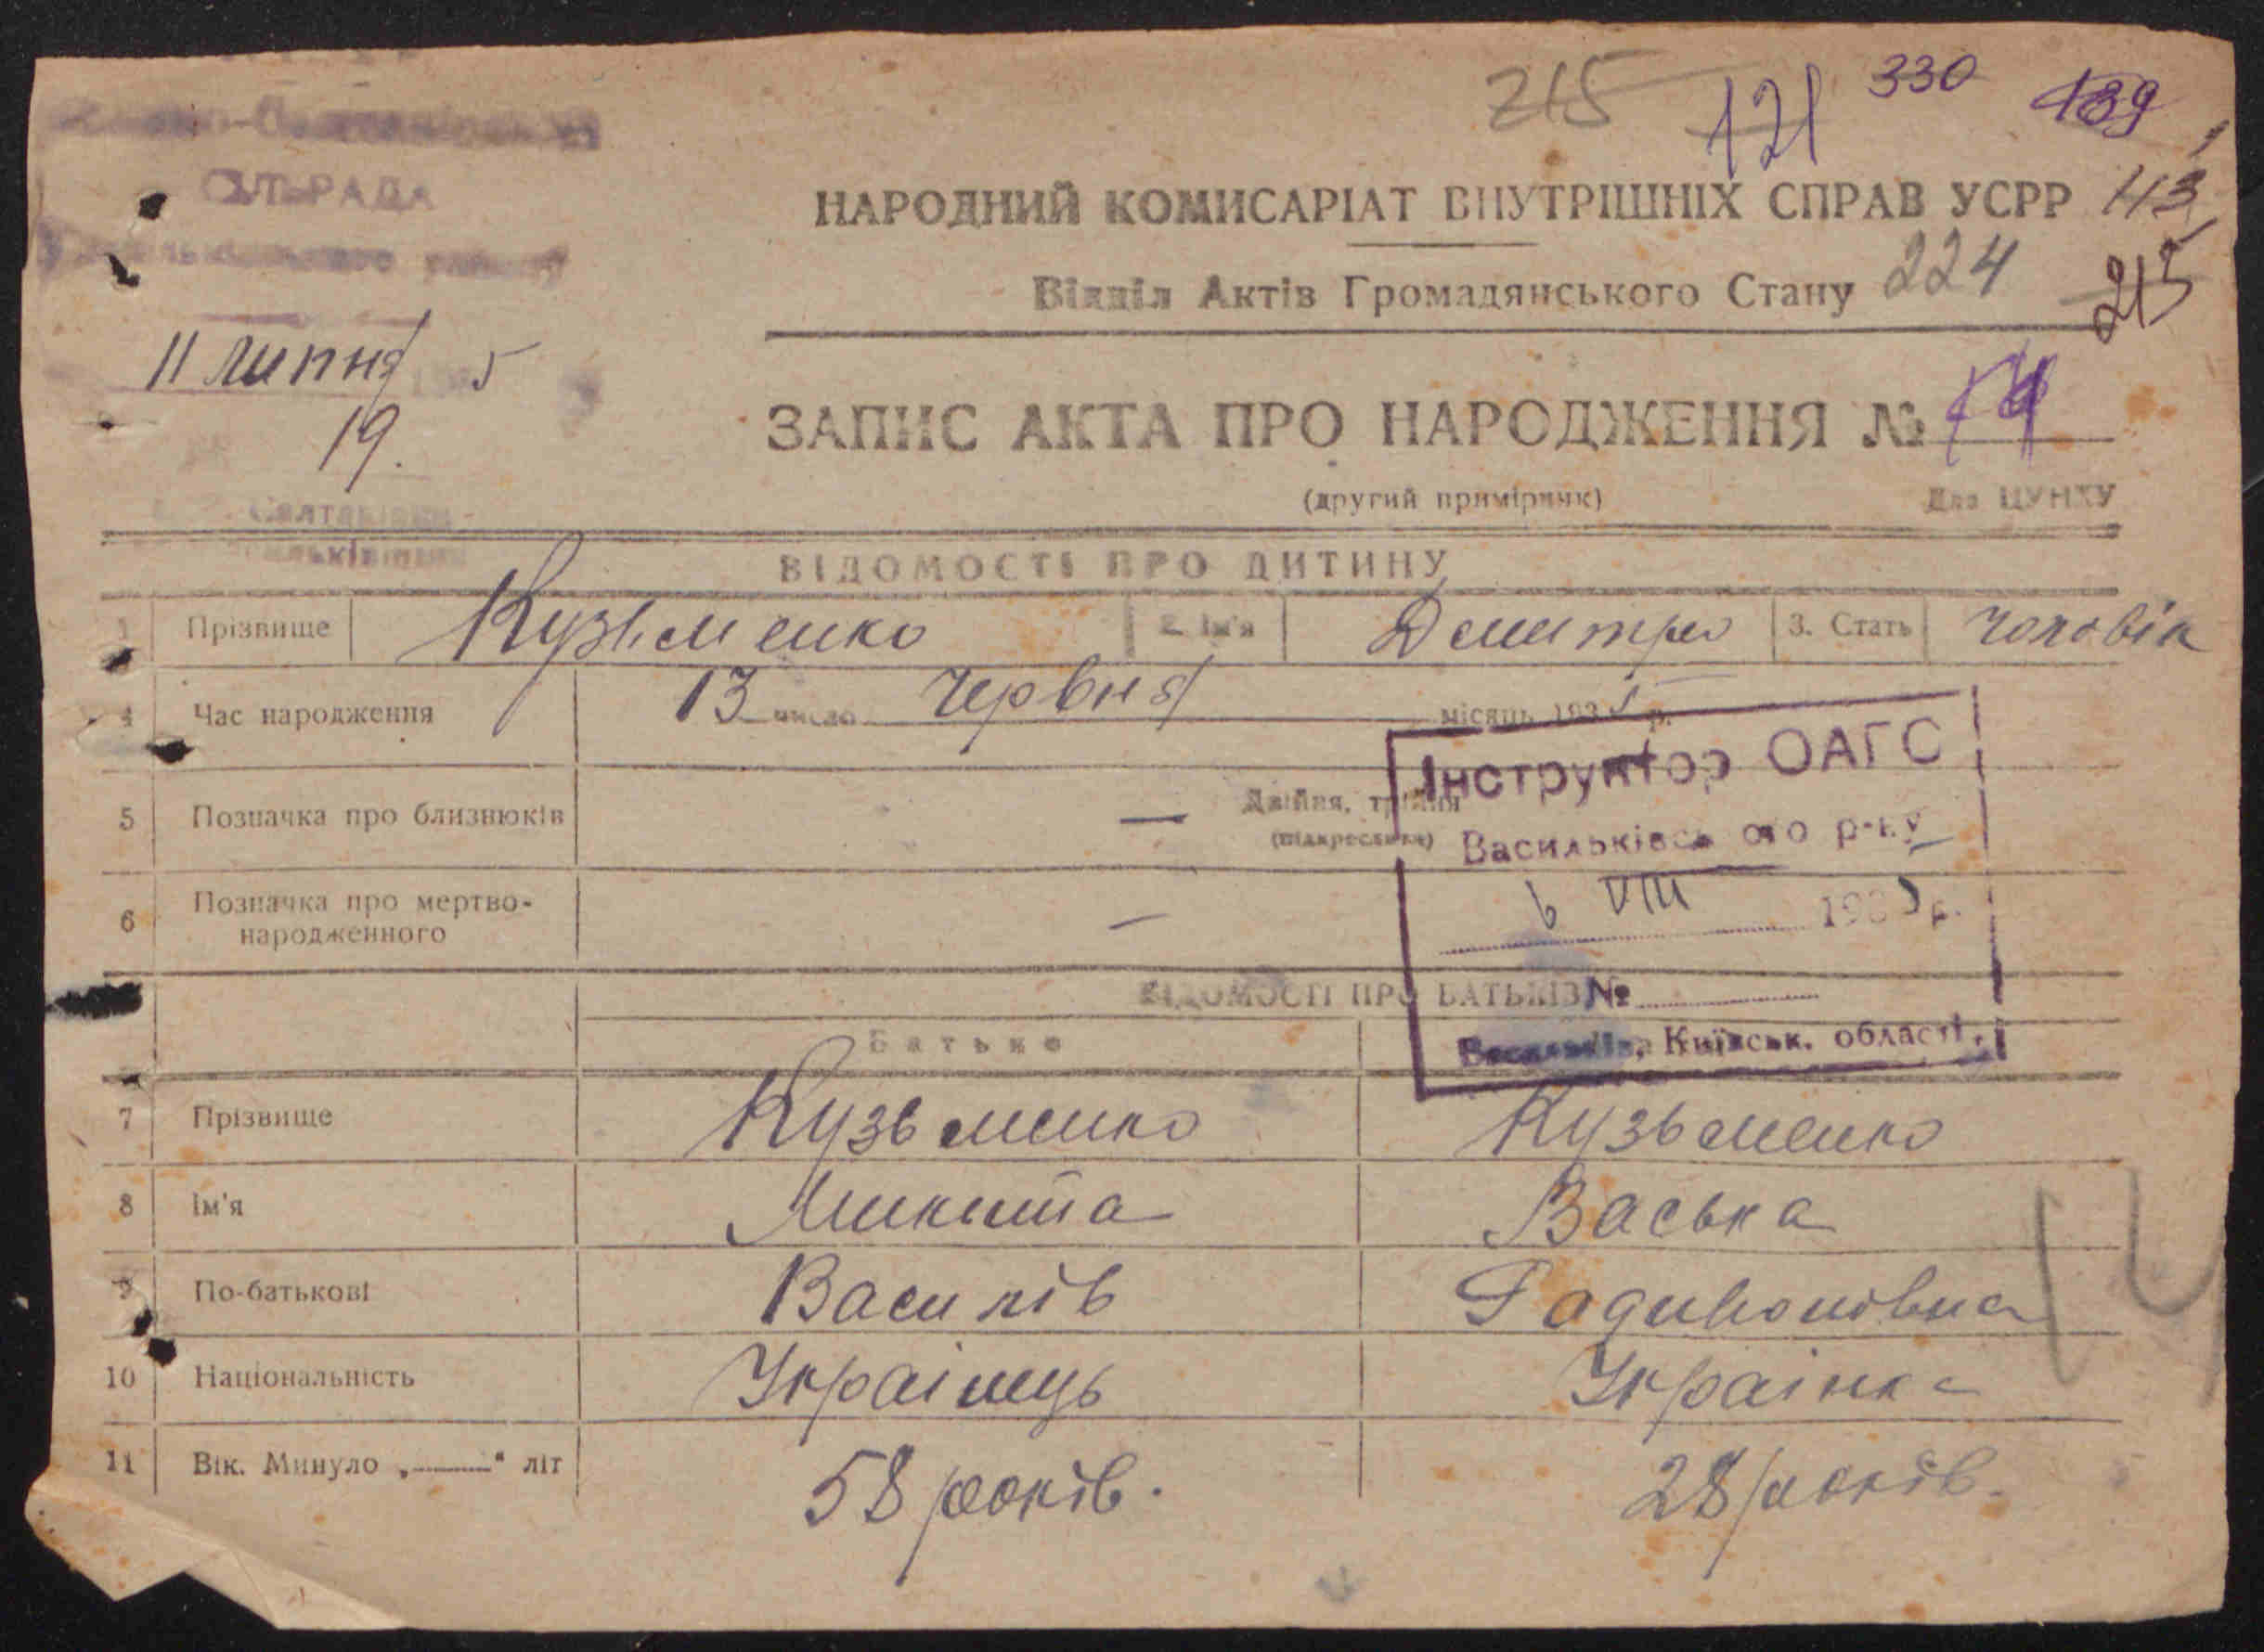 215 121 330 139
СІЛЬРАДА
НАРОДНИЙ КОМИСАРІАТ ВНУТРІШНІХ СПРАВ УСРР 113
Відділ Актів Громадянського Стану 224
215
11 липня 5
19.
ЗАПИС АКТА ПРО НАРОДЖЕННЯ №
(другий примірник) Для ЦУНХУ
ВІДОМОСТІ ПРО ДИТИНУ
1 Прізвище Кузьменко 2. Ім'я Демитро 3. Стать чоловік
4 Час народження 13 число Червня місяць 1935 р.
Інструктор ОАГС
5 Позначка про близнюків — Двійня, трійня
(підкреслити) Васильківського р-ну
6 Позначка про мертво-
народженного —
6 VIII 1935 р.
ВІДОМОСТІ ПРО БАТЬКІВ №
Батько
Київськ. області.
7 Прізвище Кузьменко Кузьменко
8 Ім'я Микита Васька
9 По-батькові Василів Радивонівна
10 Національність Українець Українка
11 Вік. Минуло „——“ літ 58 років. 28 років.